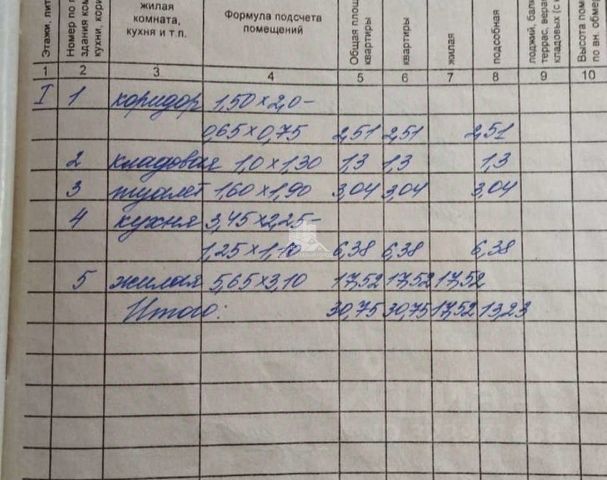 Этажи, лит
Номер по п
здания ком
кухни, кори
жилая
комната,
кухня и т.п.
Формула подсчета
помещений
Общая площ
квартиры
квартиры
жилая
подсобная
лоджий, балк
террас, веран
кладовых (с к
Высота пом
по вн. обмер
1 2 3 4 5 6 7 8 9 10
I 1 коридор 1,50×2,0-
0,65×0,75 2,51 2,51 2,51
2 кладовая 1,0×1,30 1,3 1,3 1,3
3 туалет 1,60×1,90 3,04 3,04 3,04
4 кухня 3,45×2,25-
1,25×1,10 6,38 6,38 6,38
5 жилая 5,65×3,10 17,52 17,52 17,52
Итого: 30,75 30,75 17,52 13,23